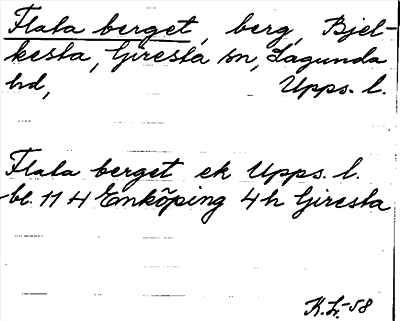 Flata berget, berg, Bjel-
kesta, Giresta sn, Lagunda
hd, Upps. l.
Flata berget ek Upps. l.
bl. 11 H Enköping 4h Giresta
K.L. -58